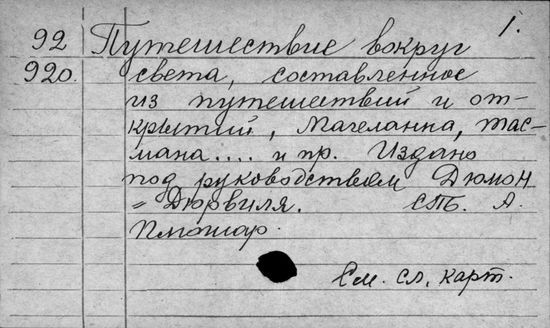 1.
92 Путешествие вокруг
920. света, составленное
из путешествий и от-
крытий, Магеллана, Тас-
мана.... и пр. Издано
под руководством Дюмон
- Дюрвиля. СПб. А.
Плюшар.
См. сл. карт.